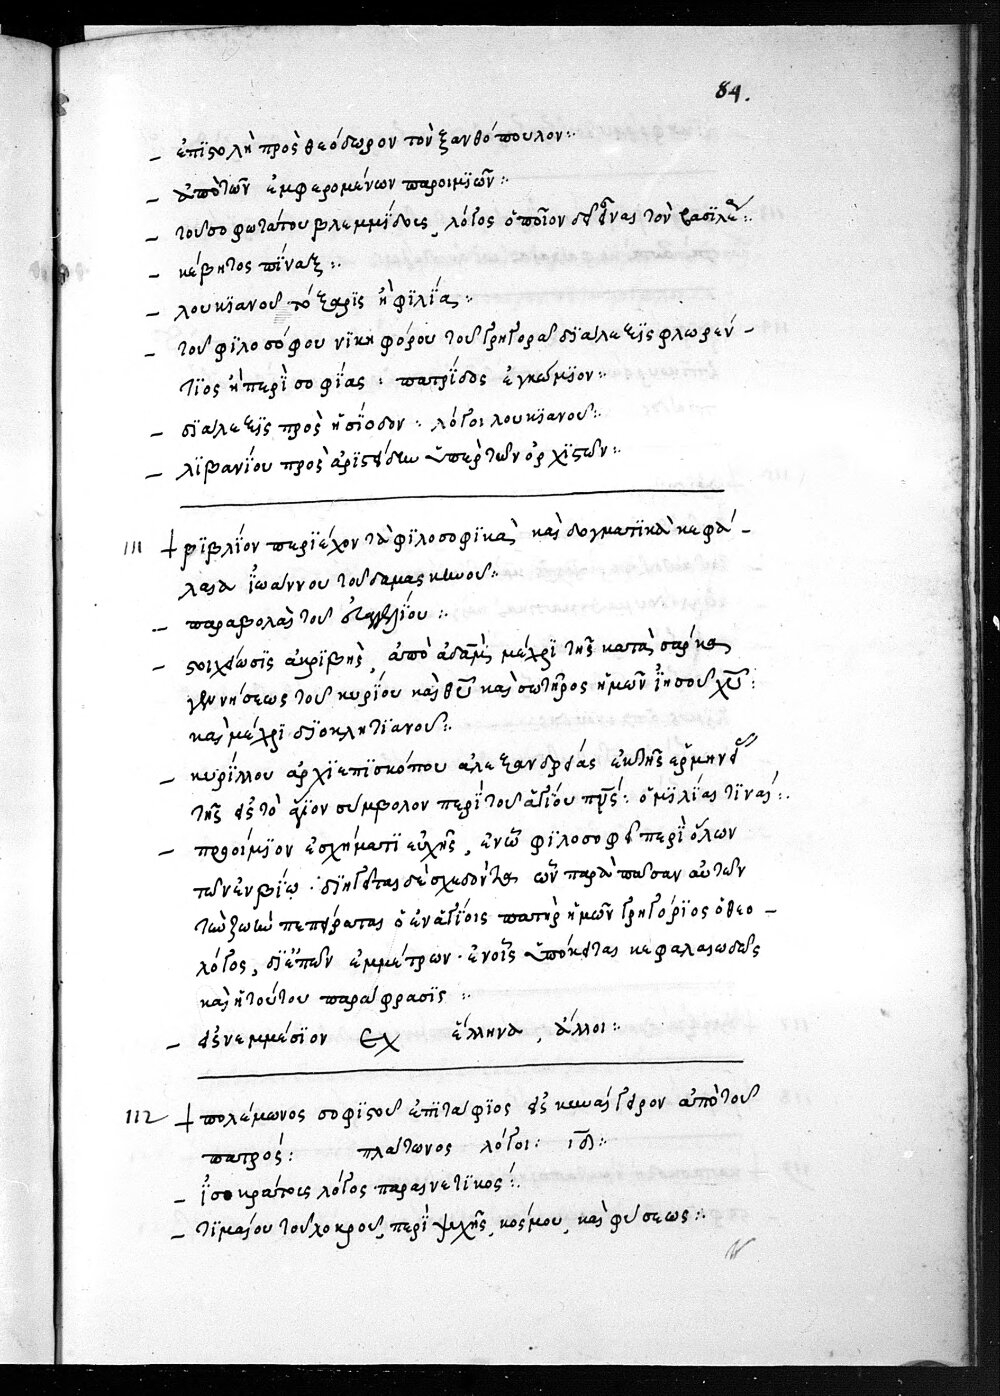 84.
– ἐπϊστολὴ πρὸς θεόδωρον τὸν ξανθόπουλον:·
– ἀπὸ τῶν ἐμφερομένων παροιμϊῶν:·
– τοῦ σοφωτάτου βλεμμίδους, λόγος ὁποῖον δεῖ εἶναι τὸν βασϊλέα:·
– κέβητος πΐναξ:·
– λουκϊανοῦ τόξαρϊς ἢ φϊλΐα:·
– τοῦ φϊλοσόφου νϊκηφόρου τοῦ γρηγορᾶ δϊάλεξϊς φλωρέν-
τϊος ἢ περὶ σοφΐας: πατρΐδος ἐγκώμϊον:·
– δϊάλεξϊς πρὸς ἡσΐοδον: λόγοι λουκϊανοῦ:·
– λϊβανΐου πρὸς ἀρϊστείδην ὑπὲρ τῶν ὀρχϊστῶν:·
111 + βϊβλΐον περϊέχον τὰ φϊλοσοφϊκὰ καὶ δογματϊκὰ κεφά-
λαια ἰωάννου τοῦ δαμασκηνοῦ:·
– παραβολαὶ τοῦ εὐαγγελίου:·
– στοιχείωσϊς ἀκρϊβὴς, ἀπὸ ἀδὰμ μέχρϊ τῆς κατὰ σάρκα
γεννήσεως τοῦ κυρίου καὶ θ̅υ̅ καὶ σωτῆρος ἡμῶν ἰησοῦ χ̅υ̅:
καὶ μέχρϊ δϊοκλητϊανοῦ:·
– κυρίλλου ἀρχϊεπϊσκόπου ἀλεξανδρείας ἐκ τῆς ἑρμηνείας
τῆς εἰς τὸ ἅγϊον σύμβολον περὶ τοῦ ἁγΐου πν̅ς̅: ὁμϊλίας τϊνάς:·
– προοίμϊον ἐν σχήματϊ εὐχῆς, ἐν ᾧ φϊλοσοφεῖ περὶ ὅλων
τῶν ἐν βίῳ· δϊηγεῖται δὲ σχεδὸν καὶ ὧν παρὰ πᾶσαν αὐτῶν
τὴν ζωὴν πεπείραται ὁ ἐν ἁγΐοις πατὴρ ἡμῶν γρηγόρϊος ὁ θεο-
λόγος, δϊ' ἐπῶν ἐμμέτρων· ἐν οἷς ὑπόκειται κεφαλαιωδῶς
καὶ ἡ τούτου παράφρασϊς:·
– εἰς νεμμέσϊον ἕλληνα, ἄλλοι:·
112 + πολέμωνος σοφϊστοῦ ἐπϊτάφϊος εἰς κυναίγειρον ἀπὸ τοῦ
πατρός: πλάτωνος λόγοι· ιδ:·
– ἰσοκράτους λόγος παραινετϊκός:·
– τϊμαίου τοῦ λοκροῦ, περὶ ψυχῆς, κόσμου, καὶ φύσεως:·